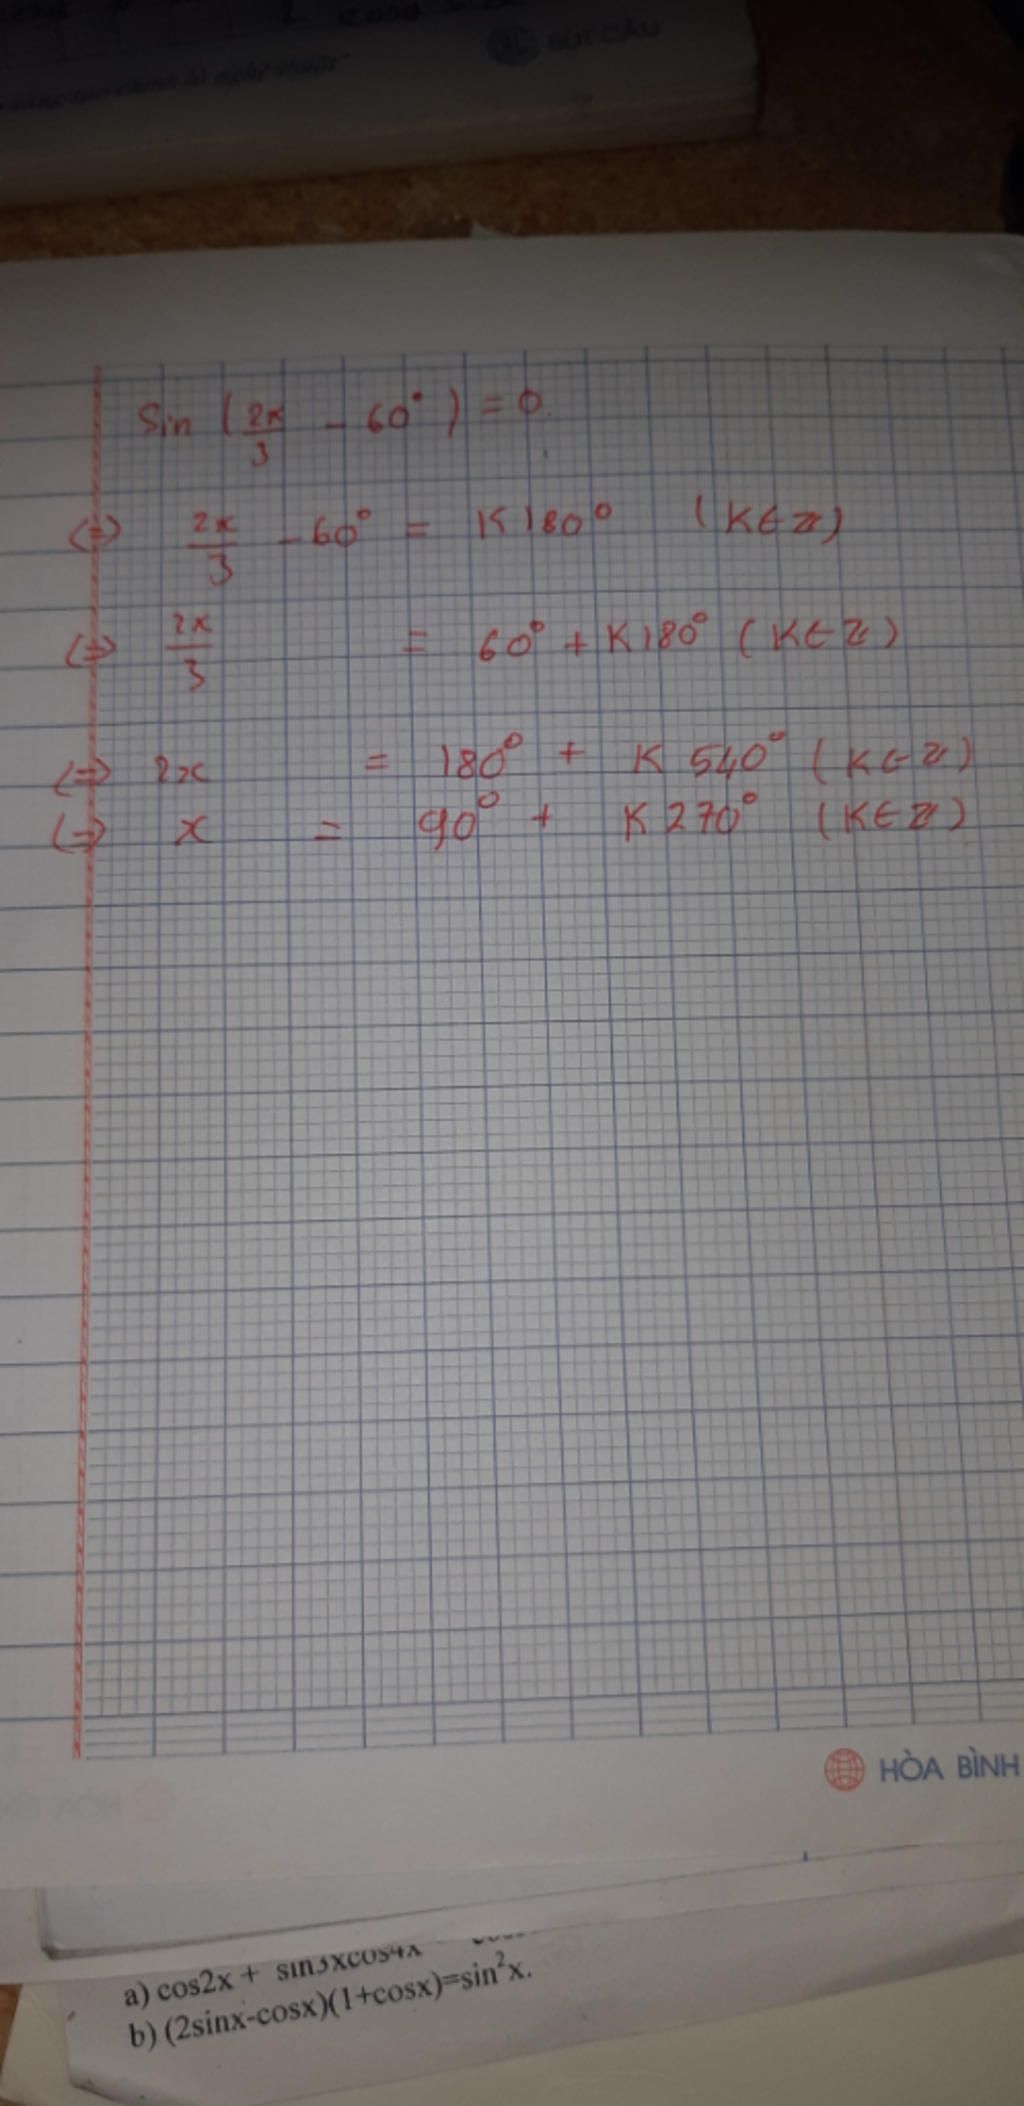 BÚT CÂU
Sin (2x/3 - 60°) = 0.
(=) 2x/3 - 60° = K180° (K∈Z)
(=) 2x/3 = 60° + K180° (K∈Z)
(=) 2x = 180° + K 540° (K∈Z)
(=) x = 90° + K 270° (K∈Z)
HÒA BÌNH
a) cos2x + sin3xcos4x
b) (2sinx-cosx)(1+cosx)=sin²x.